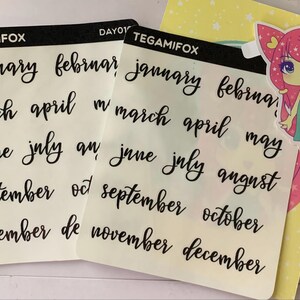 IFOX DAY01
uary februar
ch april m
ne july au
tember oct
ember de
TEGAMIFOX
january februa
march april may
june july august
september october
november december